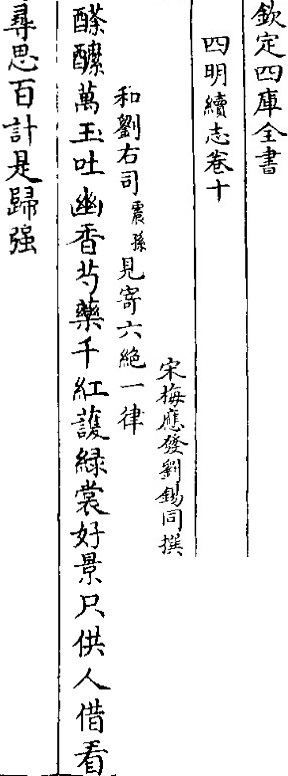 欽定四庫全書
四明續志卷十
宋梅應發劉錫同撰
和劉右司震孫見寄六絶一律
酴醿萬玉吐幽香芍藥千紅護緑裳好景只供人借看
尋思百計是歸强